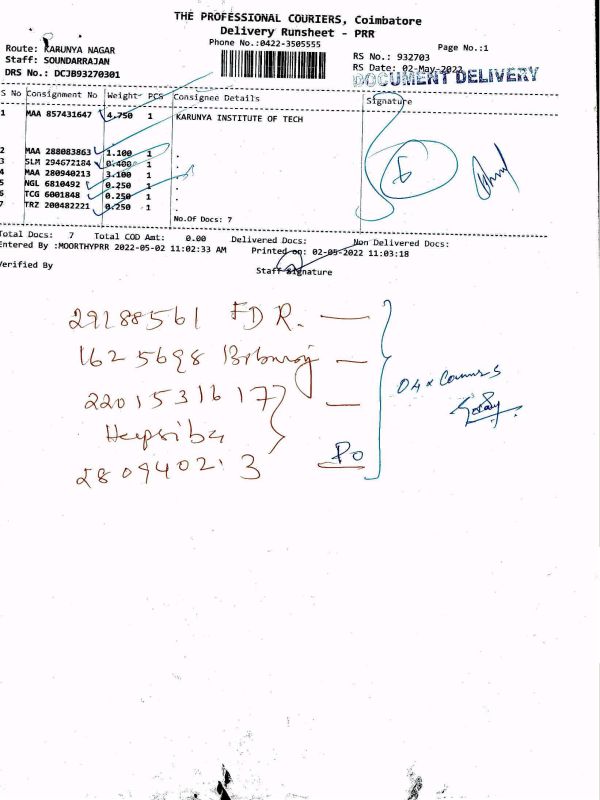 THE PROFESSIONAL COURIERS, Coimbatore
Delivery Runsheet - PRR
Phone No.:0422-3505555
Page No.:1
Route: KARUNYA NAGAR
RS No.: 932703
Staff: SOUNDARRAJAN
RS Date: 02-May-2022
DRS No.: DCJB93270301
DOCUMENT DELIVERY
S No Consignment No Weight PCS Consignee Details Signature
1 MAA 857431647 4.750 1 KARUNYA INSTITUTE OF TECH
2 MAA 288083863 1.100 1 .
3 SLM 294672184 0.400 1 .
4 MAA 280940213 3.100 1 .
5 NGL 6810492 0.250 1 .
6 TCG 6001848 0.250 1 .
7 TRZ 200482221 0.250 1 .
No.Of Docs: 7
6
Total Docs: 7 Total COD Amt: 0.00 Delivered Docs: Non Delivered Docs:
Entered By :MOORTHYPRR 2022-05-02 11:02:33 AM Printed on: 02-05-2022 11:03:18
Verified By
Staff Signature
29188561 FDR. —
1625698 —
2201531617 —
Hepsiba
280940213 Po
04 x